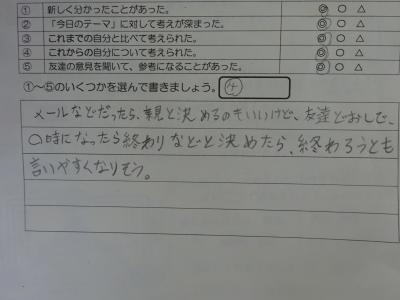 ① 新しく分かったことがあった。 ◎ ○ △
② 「今日のテーマ」に対して考えが深まった。 ◎ ○ △
③ これまでの自分と比べて考えられた。 ◎ ○ △
④ これからの自分について考えられた。 ◎ ○ △
⑤ 友達の意見を聞いて、参考になることがあった。 ◎ ○ △
①~⑤のいくつかを選んで書きましょう。 ④
メールなどだったら、親と決めるのもいいけど、友達どおしで、
○時になったら終わりなどと決めたら、終わろうとも
言いやすくなりそう。